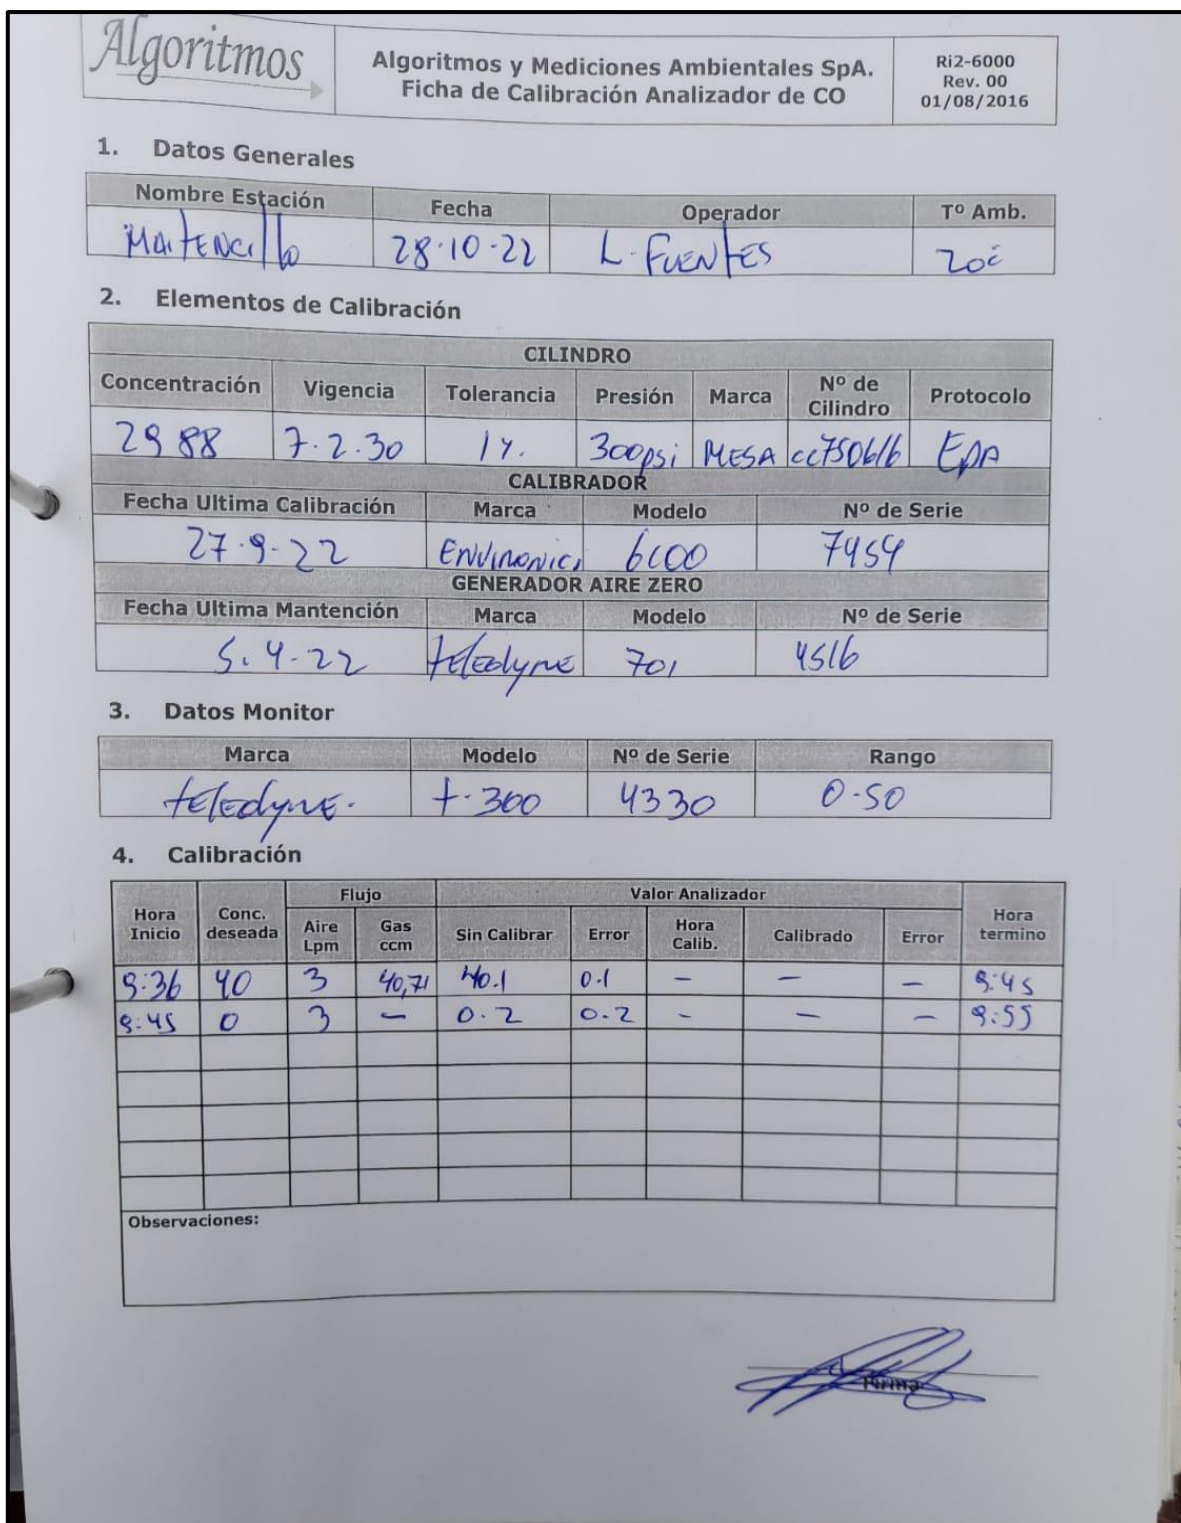 Algoritmos
Algoritmos y Mediciones Ambientales SpA.
Ficha de Calibración Analizador de CO
Ri2-6000
Rev. 00
01/08/2016
1. Datos Generales
Nombre Estación Fecha Operador Tº Amb.
Maitencillo 28·10·22 L. FUENTES 20c
2. Elementos de Calibración
CILINDRO
Concentración Vigencia Tolerancia Presión Marca Nº de Cilindro Protocolo
2988 7.2.30 1%. 300psi MESA cc750616 EPA
CALIBRADOR
Fecha Ultima Calibración Marca Modelo Nº de Serie
27.9.22 Environics 6100 7454
GENERADOR AIRE ZERO
Fecha Ultima Mantención Marca Modelo Nº de Serie
5.4.22 teledyne 701 4516
3. Datos Monitor
Marca Modelo Nº de Serie Rango
teledyne. t.300 4330 0-50
4. Calibración
Flujo Valor Analizador
Hora Inicio Conc. deseada Aire Lpm Gas ccm Sin Calibrar Error Hora Calib. Calibrado Error Hora termino
9:36 40 3 40,71 40.1 0.1 – – – 9:45
9:45 0 3 – 0.2 0.2 – – – 9:55
Observaciones:
Firma